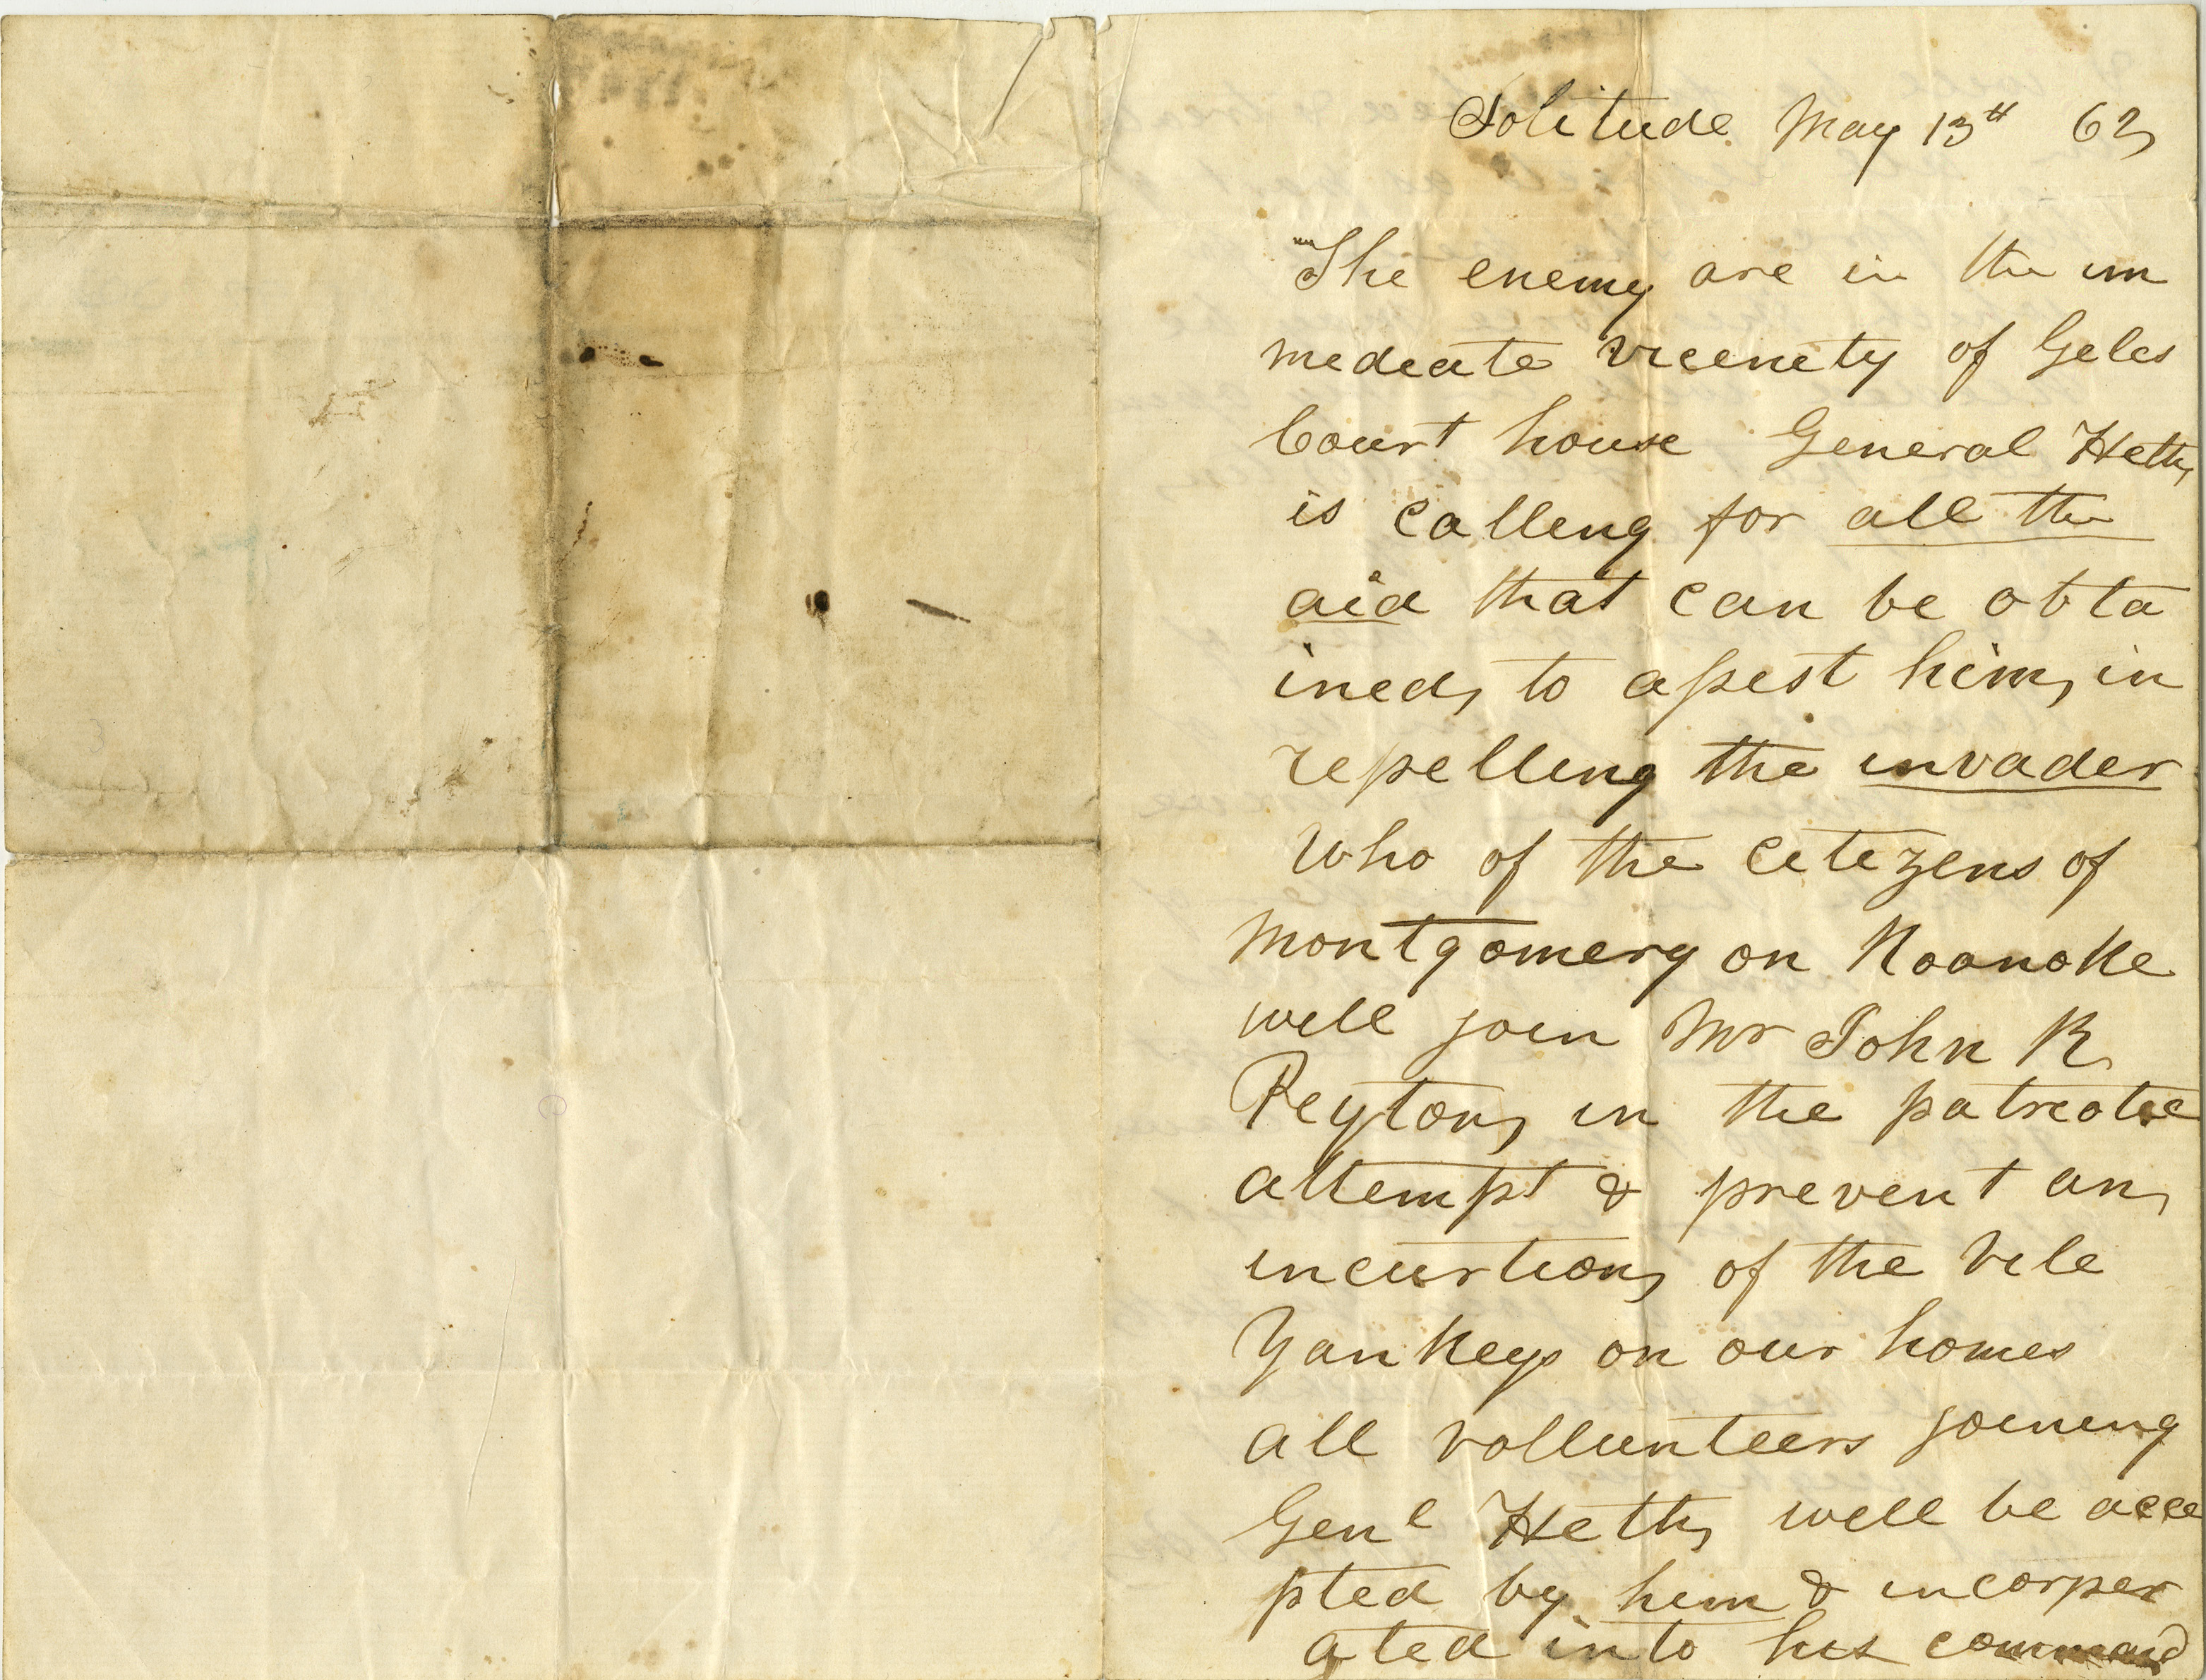 Solitude May 13th 62
The enemy are in the im
mediate vicenety of Geles
Court house General Heth
is calling for all the
aid that can be obta
ined, to assist him, in
repelling the invader
Who of the citizens of
Montgomery on Roanoke
will join Mr John R
Peyton, in the patriotic
attempt & prevent an,
incurtion, of the vile
Yankeys on our homes
all vollunteers joining
Genl Heth, will be acce
pted by him & incorper
ated into his command